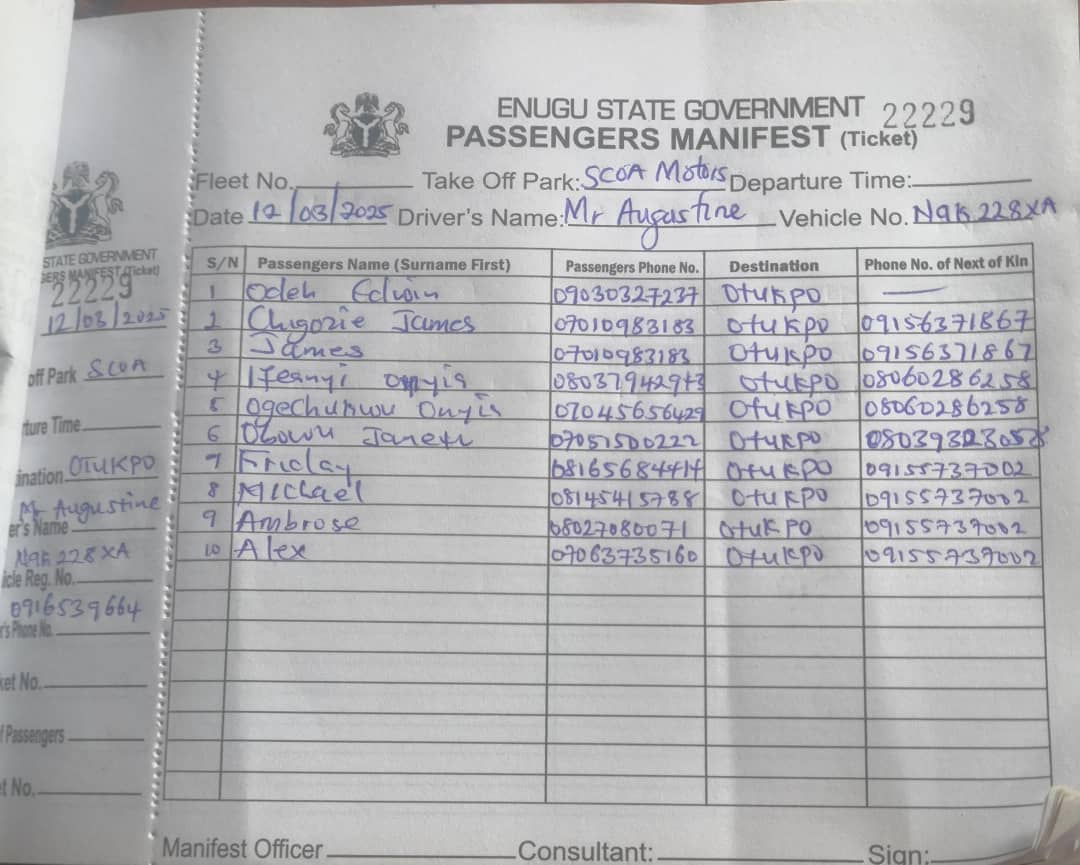 ENUGU STATE GOVERNMENT 22229
PASSENGERS MANIFEST (Ticket)
Fleet No. Take Off Park: SCOA Motors Departure Time:
Date 12/03/2025 Driver's Name: Mr Augustine Vehicle No. NGK 228XA
S/N Passengers Name (Surname First) Passengers Phone No. Destination Phone No. of Next of Kin
1 Odeh Edwin 09030327237 Otukpo
2 Chigozie James 07010983183 Otukpo 09156371867
3 James 07010983183 Otukpo 09156371867
4 Ifeanyi Onyia Otukpo 08060286258
5 Ogechukwu Onyia 07045656429 Otukpo 08060286258
6 07051500222 Otukpo
7 Friday 08165684414 Otukpo 09155737002
8 Michael 08145415788 Otukpo 09155737002
9 Ambrose 08027080071 Otukpo 09155737002
10 Alex 07063735160 Otukpo 09155737002
Manifest Officer Consultant: Sign:
STATE GOVERNMENT
GERS MANIFEST (Ticket)
22229
12/03/2025
off Park SCOA
rture Time
ination OTUKPO
Mr Augustine
er's Name
NGK 228XA
icle Reg. No.
0916539664
r's Phone No.
ket No.
f Passengers
et No.